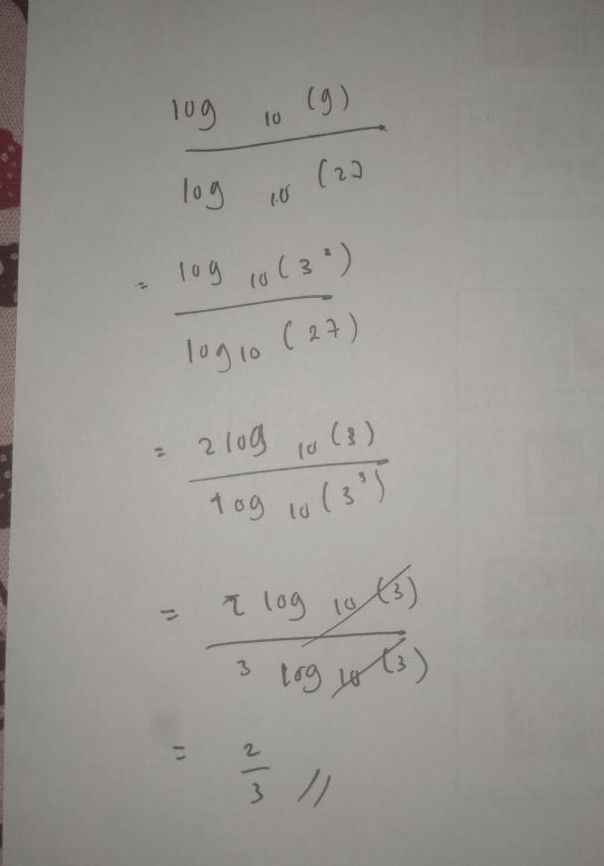 log 10 (9)
log 10 (27
= log 10 (3²)
log 10 (27)
= 2 log 10 (3)
log 10 (3³)
= 2 log 10 (3)
3 log 10 (3)
= 2
3 //